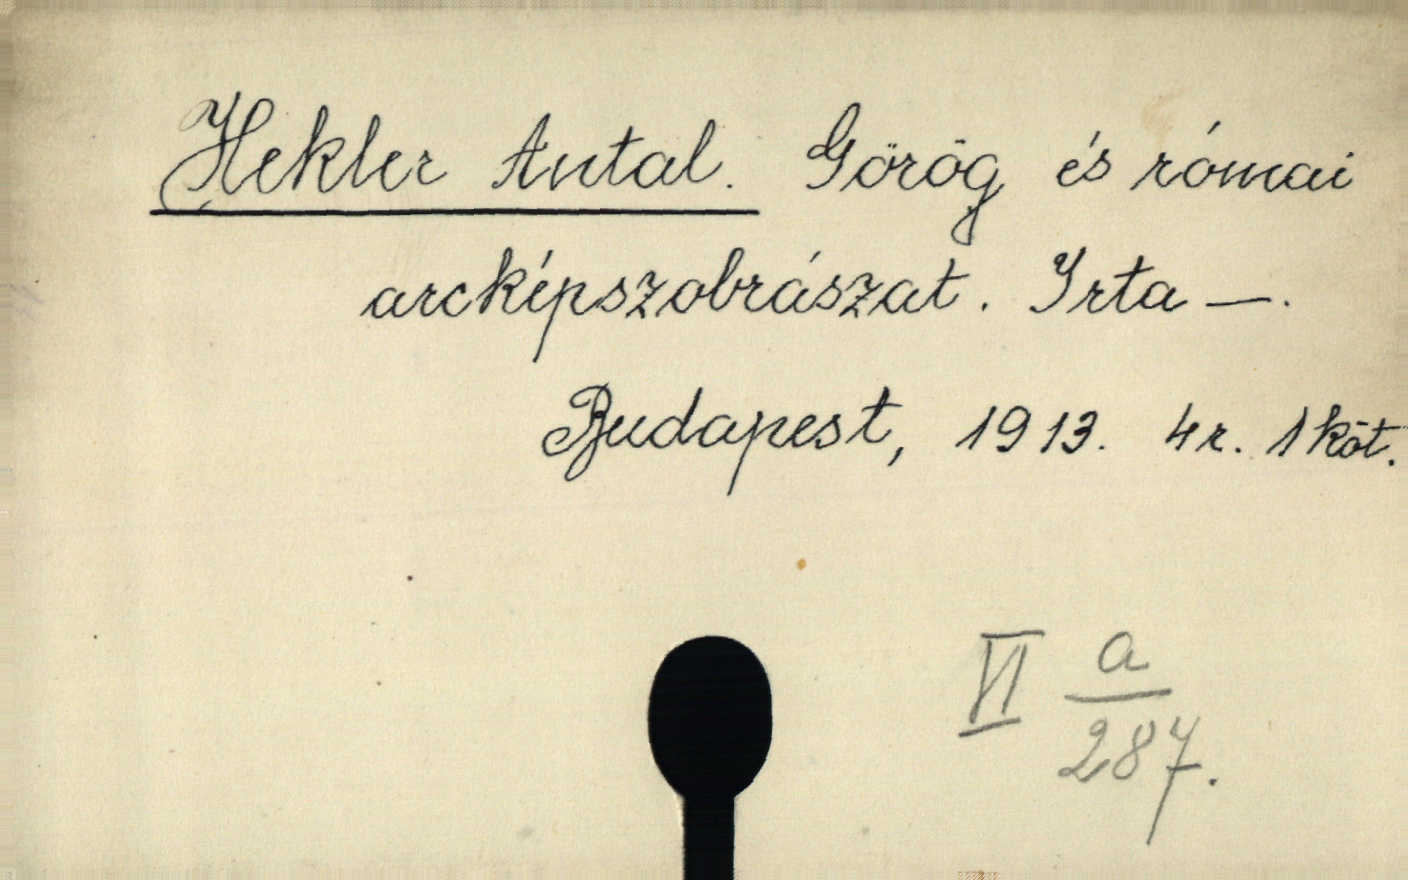 Hekler Antal. Görög és római
arcképszobrászat. Irta —.
Budapest, 1913. 4r. 1 köt.
VI a
287.